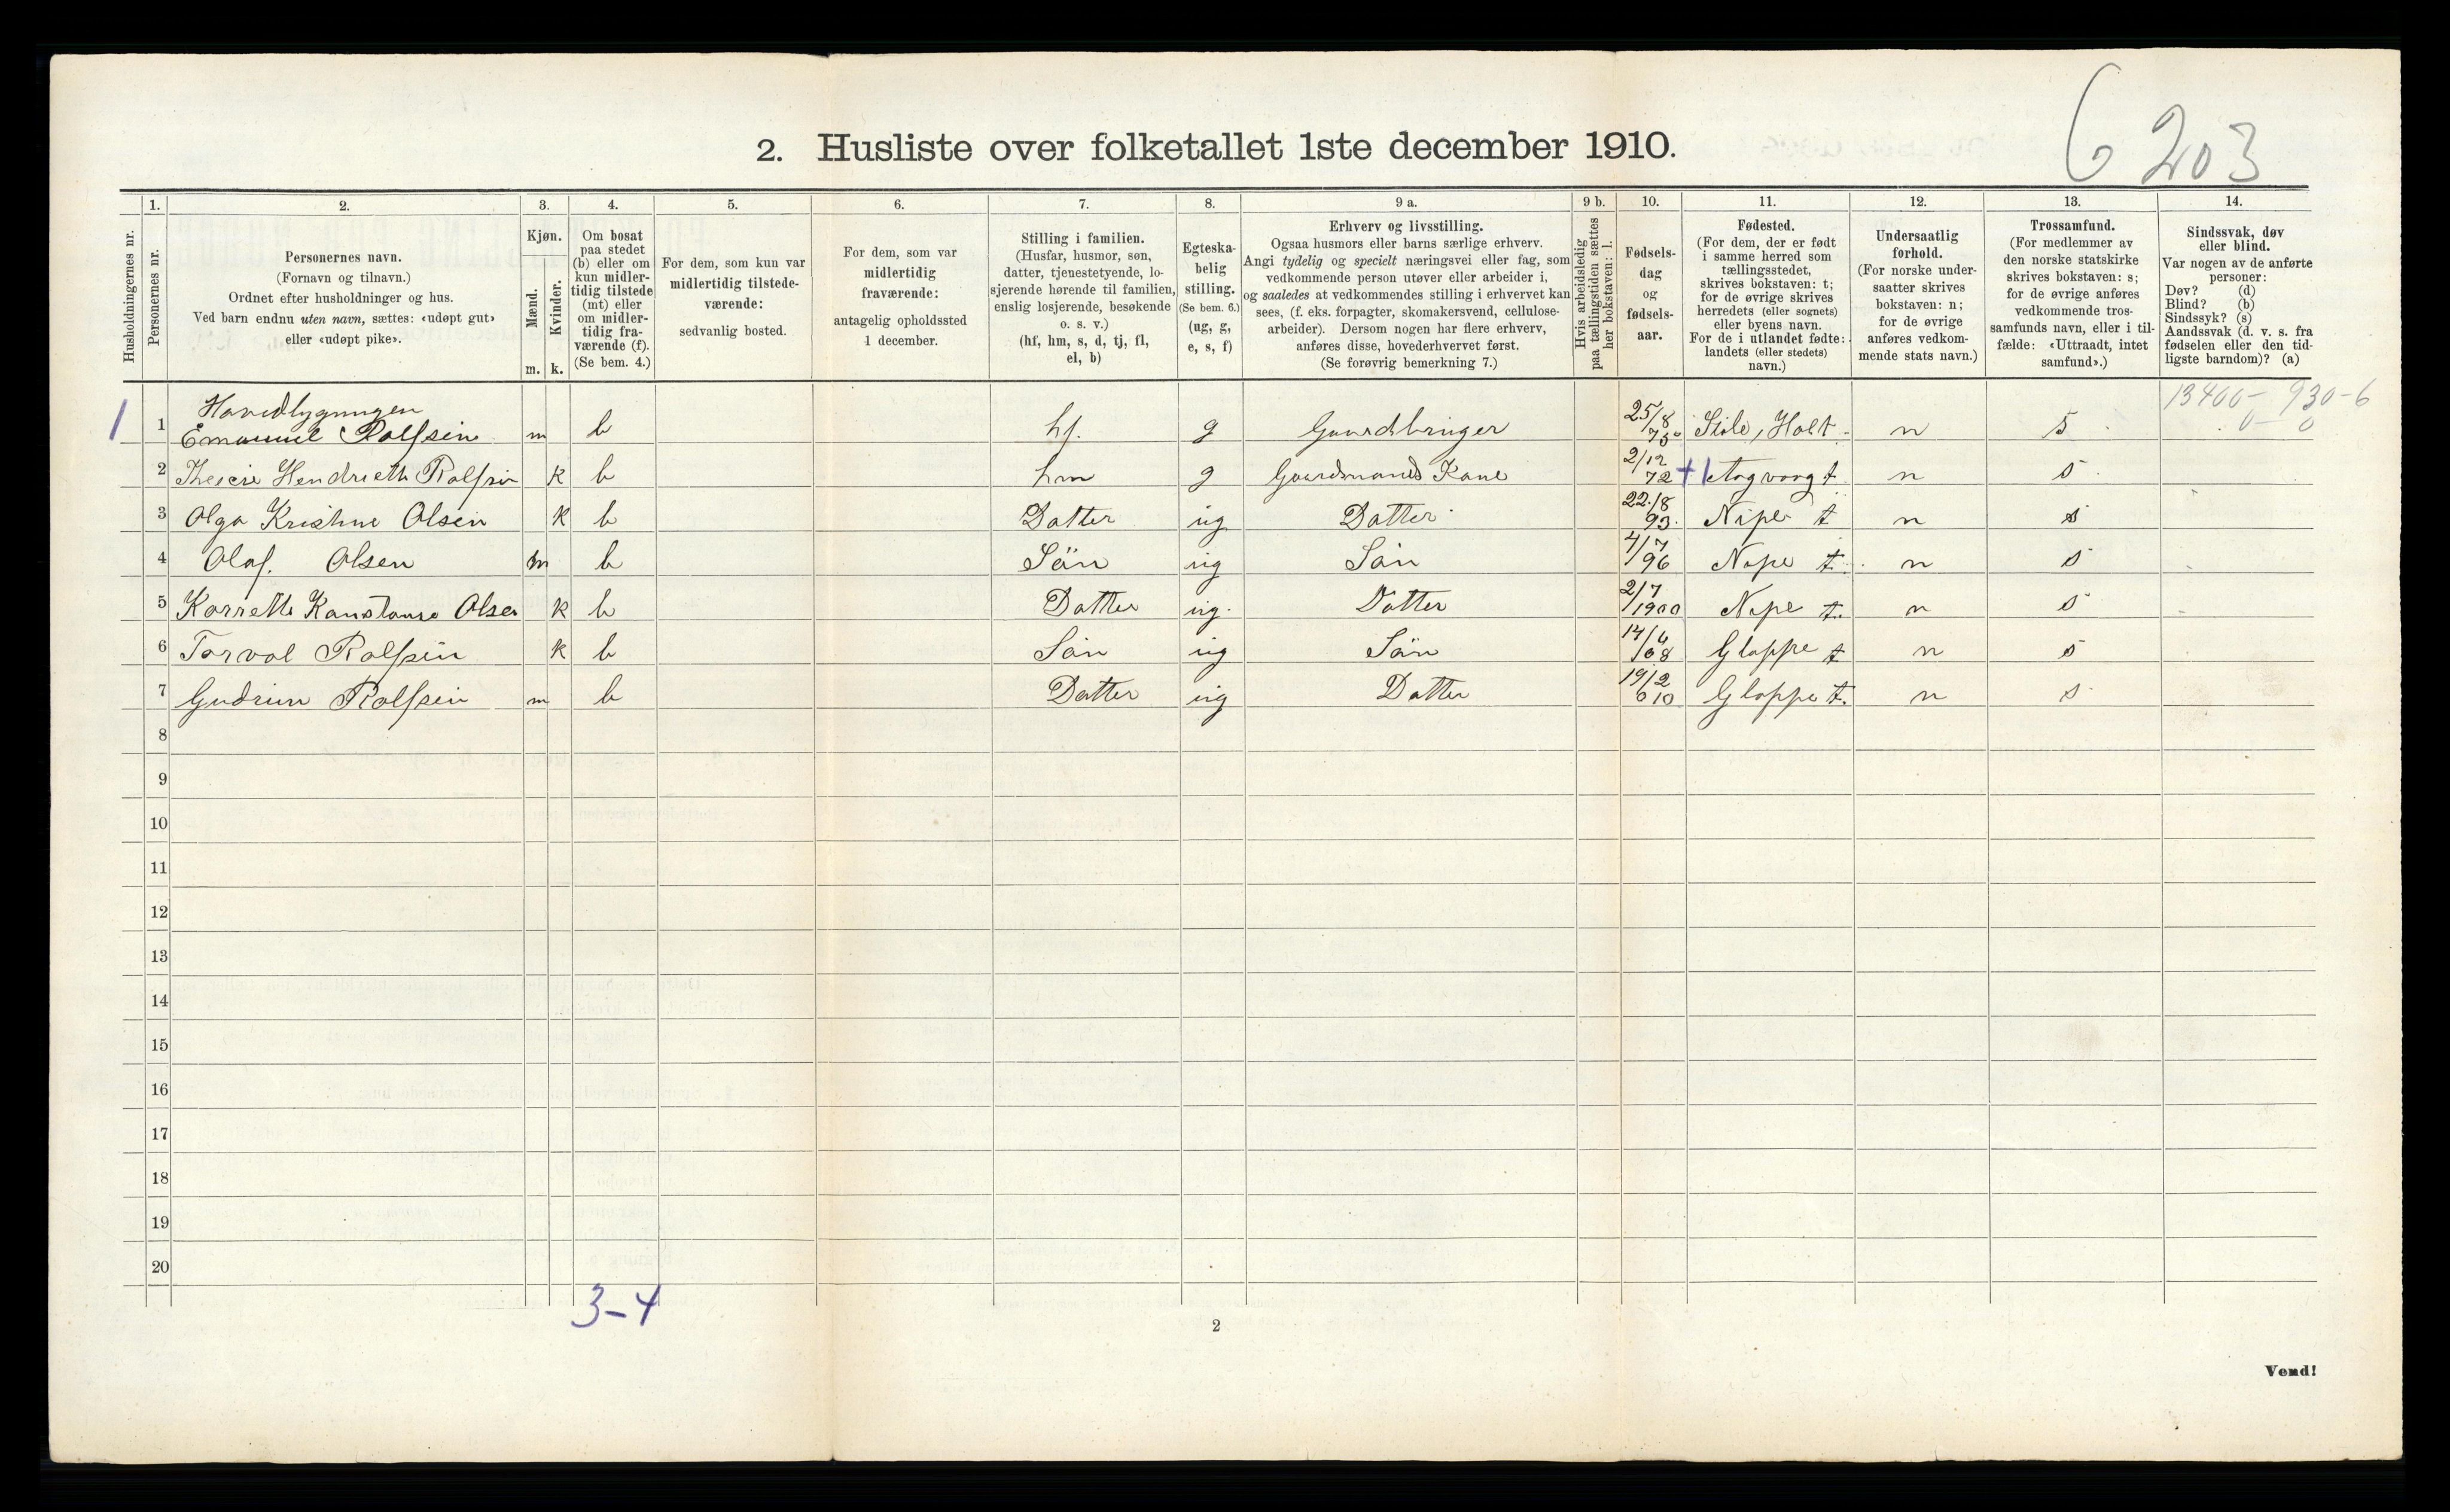 6 203
2. Husliste over folketallet 1ste december 1910.
1. 2. 3. 4. 5. 6. 7. 8. 9 a. 9 b. 10. 11. 12. 13. 14.
Husholdningernes nr.
Personernes nr.
Personernes navn.
(Fornavn og tilnavn.)
Ordnet efter husholdninger og hus.
Ved barn endnu uten navn, sættes: «udøpt gut»
eller «udøpt pike».
Kjøn.
Mænd.
Kvinder.
m. k.
Om bosat
paa stedet
(b) eller om
kun midler-
tidig tilstede
(mt) eller
om midler-
tidig fra-
værende (f).
(Se bem. 4.)
For dem, som kun var
midlertidig tilstede-
værende:
sedvanlig bosted.
For dem, som var
midlertidig
fraværende:
antagelig opholdssted
1 december.
Stilling i familien.
(Husfar, husmor, søn,
datter, tjenestetyende, lo-
sjerende hørende til familien,
enslig losjerende, besøkende
o. s. v.)
(hf, hm, s, d, tj, fl,
el, b)
Egteska-
belig
stilling.
(Se bem. 6.)
(ug, g,
e, s, f)
Erhverv og livsstilling.
Ogsaa husmors eller barns særlige erhverv.
Angi tydelig og specielt næringsvei eller fag, som
vedkommende person utøver eller arbeider i,
og saaledes at vedkommendes stilling i erhvervet kan
sees, (f. eks. forpagter, skomakersvend, cellulose-
arbeider). Dersom nogen har flere erhverv,
anføres disse, hovederhvervet først.
(Se forøvrig bemerkning 7.)
Hvis arbeidsledig
paa tællingstiden sættes
her bokstaven: l.
Fødsels-
dag
og
fødsels-
aar.
Fødested.
(For dem, der er født
i samme herred som
tællingsstedet,
skrives bokstaven: t;
for de øvrige skrives
herredets (eller sognets)
eller byens navn.
For de i utlandet fødte:
landets (eller stedets)
navn.)
Undersaatlig
forhold.
(For norske under-
saatter skrives
bokstaven: n;
for de øvrige
anføres vedkom-
mende stats navn.)
Trossamfund.
(For medlemmer av
den norske statskirke
skrives bokstaven: s;
for de øvrige anføres
vedkommende tros-
samfunds navn, eller i til-
fælde: «Uttraadt, intet
samfund».)
Sindssvak, døv
eller blind.
Var nogen av de anførte
personer:
Døv? (d)
Blind? (b)
Sindssyk? (s)
Aandssvak (d. v. s. fra
fødselen eller den tid-
ligste barndom)? (a)
13400- 930-6
0- 0
1 1 Emanuel Rolfsen m b hf. g Gaardbruger 25/8 75 Holt n s
2 Hendriette Rolfsen k b hm g Gaardmands Kone 2/12 72 +1 t n s
3 Olga Kristine Olsen k b Datter ug Datter 22/8 93. Nipe t n s
4 Olaf. Olsen m b Sön ug Sön 4/7 96 Nipe t. n s
5 Olsen k b Datter ug. Datter 2/7 1900 Nipe t. n s
6 Torval Rolfsen k b Sön ug Sön 14/6 08 Gloppe t n s
7 Gudrun Rolfsen m b Datter ug Datter 19/2 010 Gloppe t. n s
8
9
10
11
12
13
14
15
16
17
18
19
20
3-4
2
Vend!